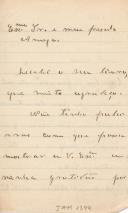 Exmo Snr. e meu presado
Amigo.
Recebi o seu livro,
que muito agradeço.
Não tenho pala-
vras com que possa
mostrar a V. Exa a
minha gratidão por
JAN 1894